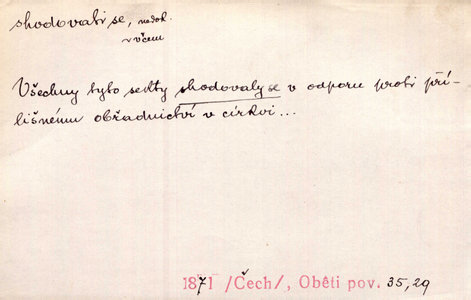 shodovati se, nedok.
v včem
Všechny tyto sekty shodovaly se v odporu proti pří-
lišnému obřadnictví v církvi...
1871 /Čech/, Oběti pov. 35,29